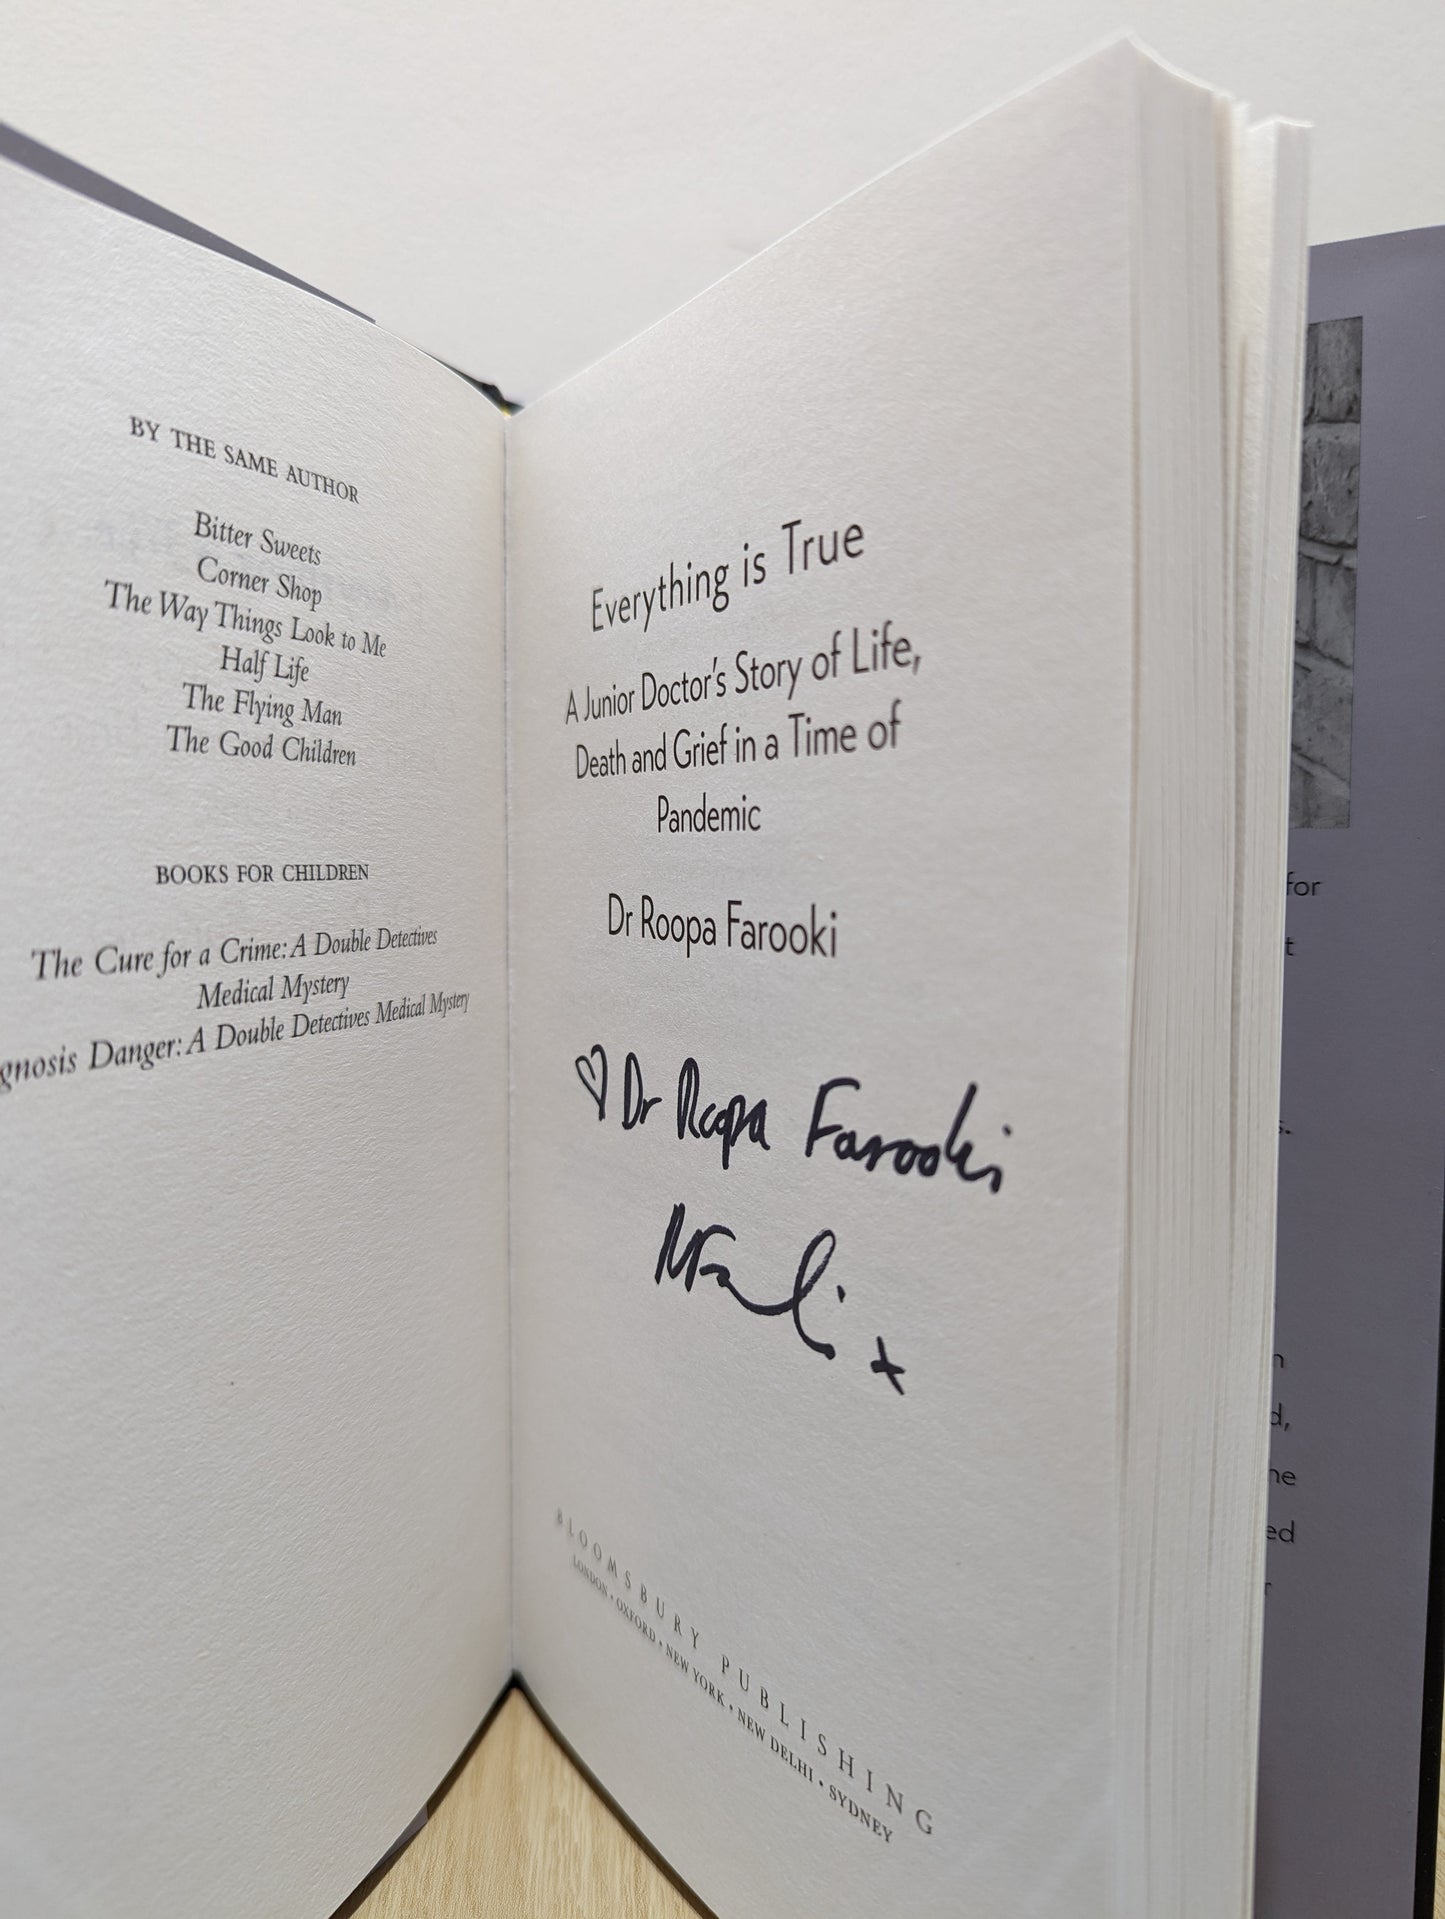 BY THE SAME AUTHOR
Bitter Sweets
Corner Shop
The Way Things Look to Me
Half Life
The Flying Man
The Good Children
BOOKS FOR CHILDREN
The Cure for a Crime: A Double Detectives
Medical Mystery
gnosis Danger: A Double Detectives Medical Mystery
Everything is True
A Junior Doctor's Story of Life,
Death and Grief in a Time of
Pandemic
Dr Roopa Farooki
♡ Dr Roopa Farooki
BLOOMSBURY PUBLISHING
LONDON • OXFORD • NEW YORK • NEW DELHI • SYDNEY
for
t
s.
n
d,
he
ed
r